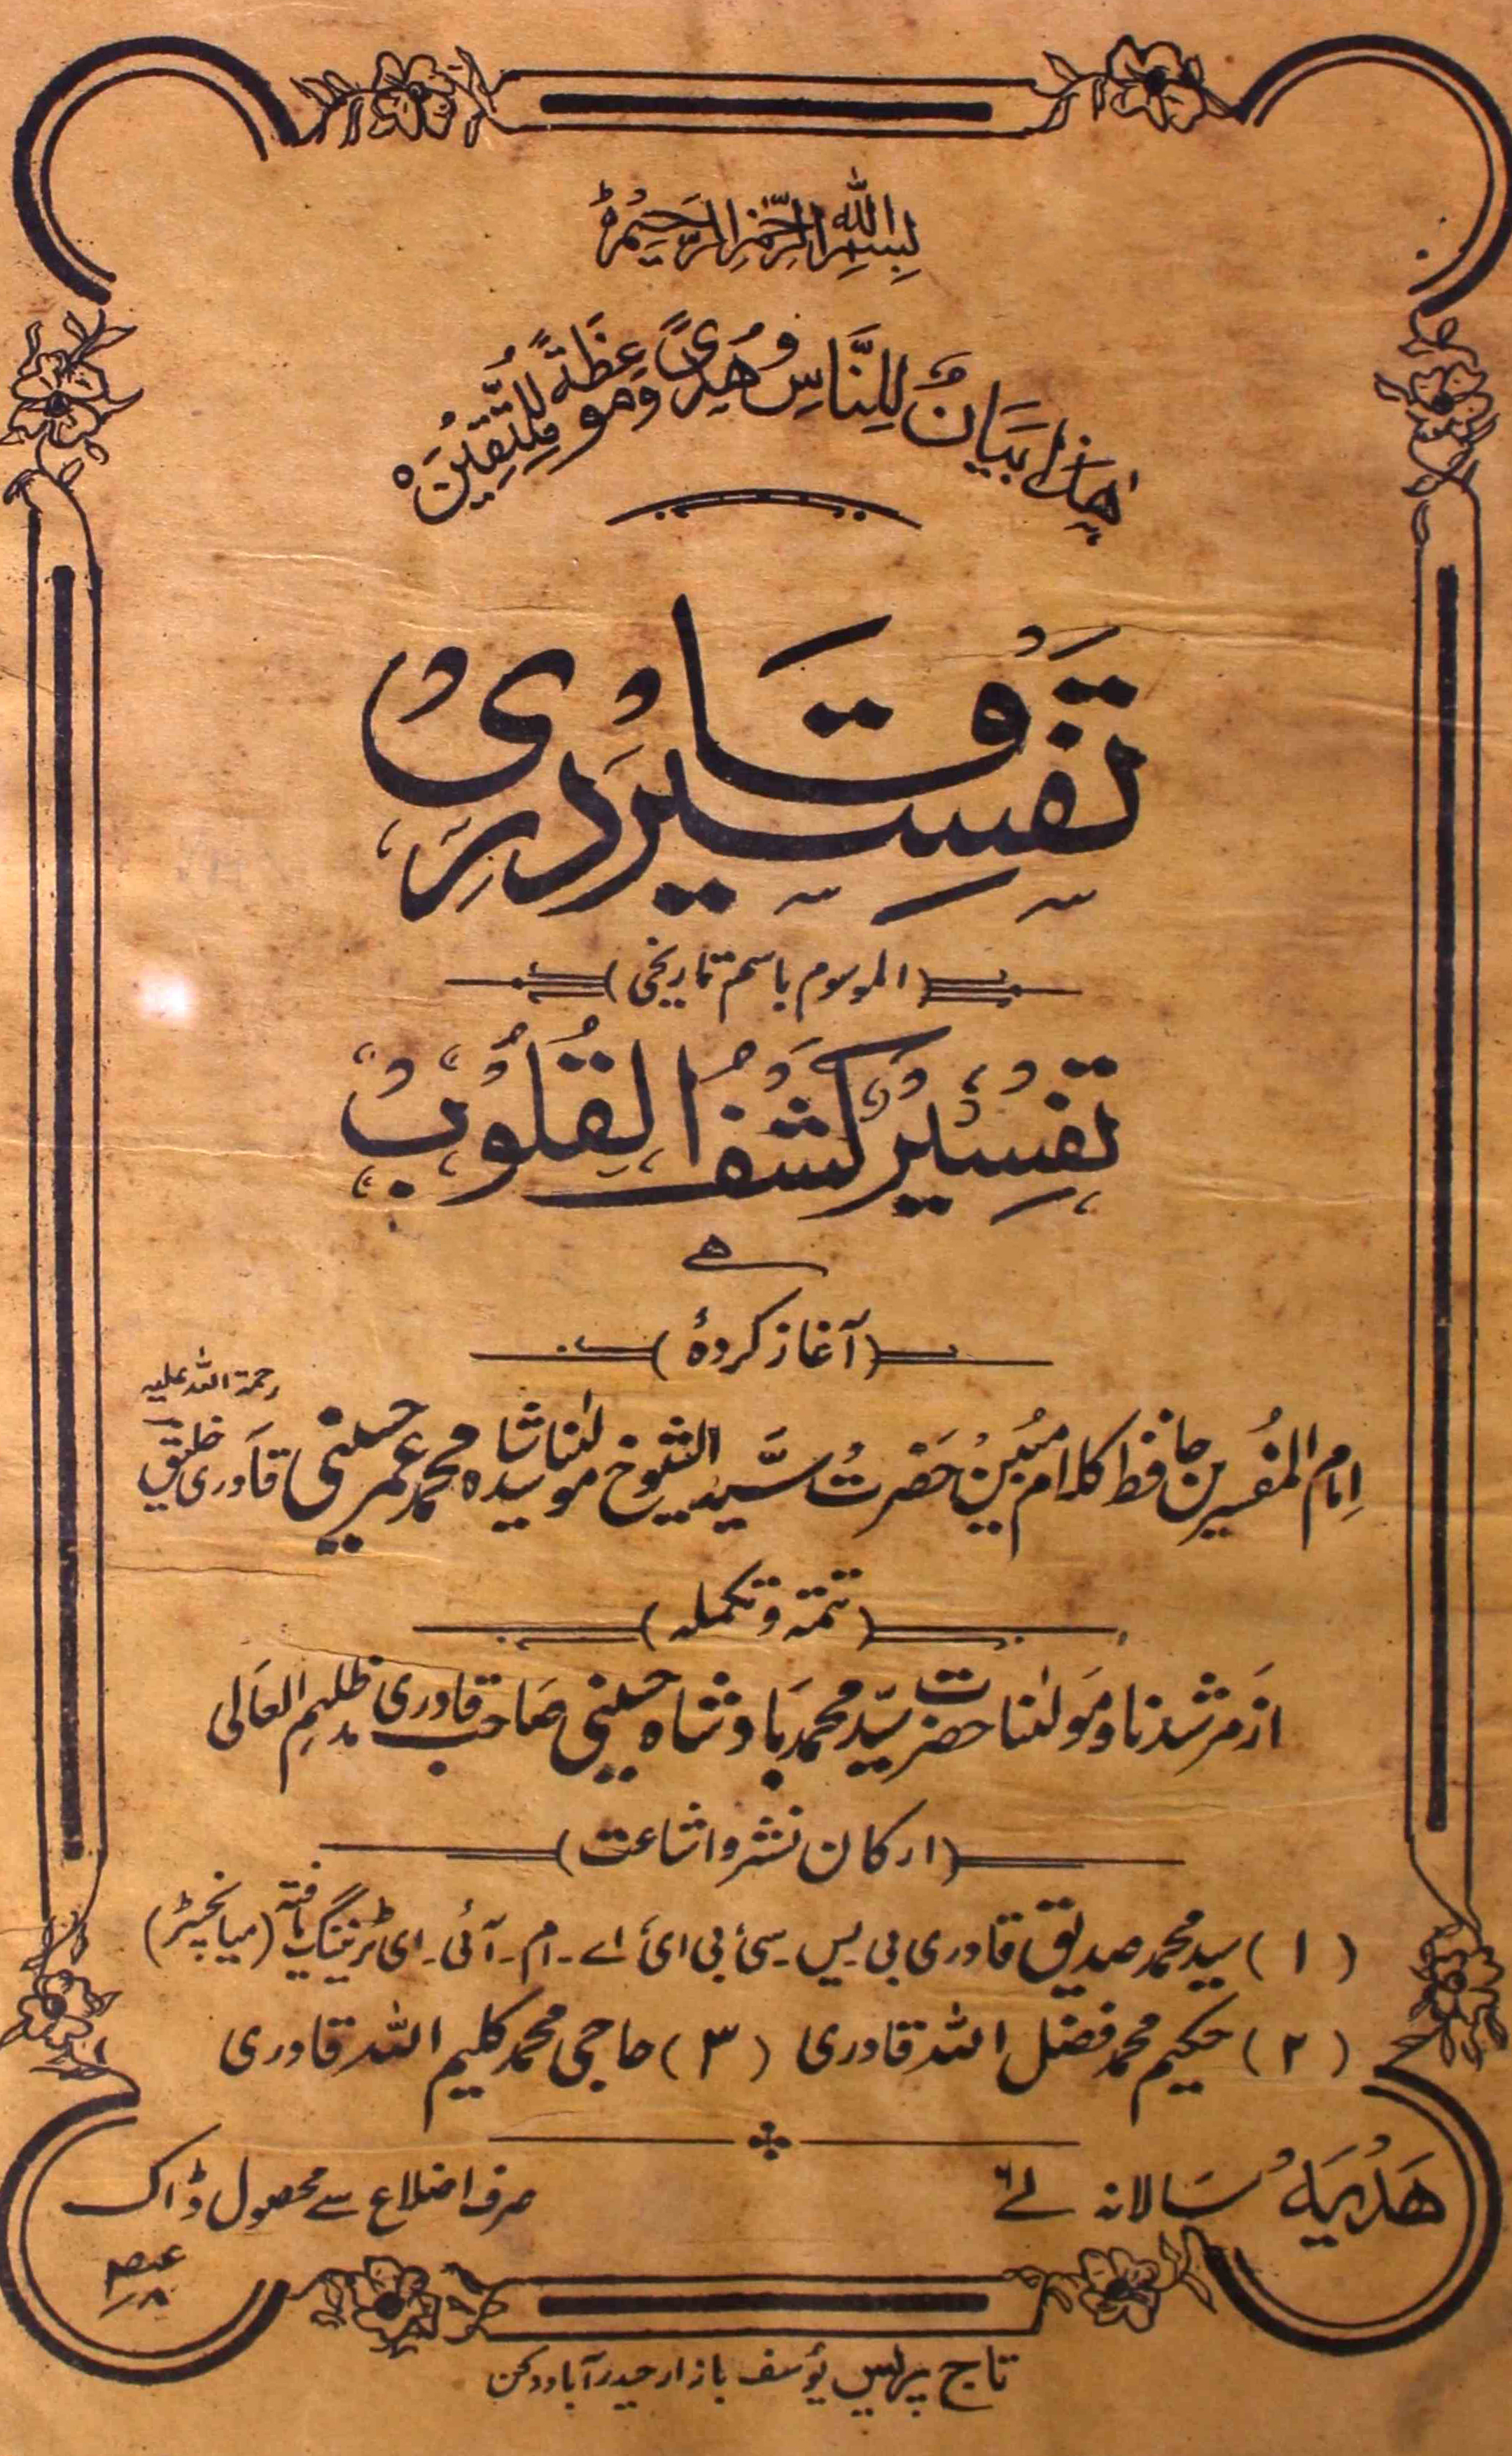 بِسْمِ اللهِ الرَّحْمٰنِ الرَّحِیْمِ
ھٰذَا بَیَانٌ لِّلنَّاسِ وَھُدًی وَّمَوْعِظَةٌ لِّلْمُتَّقِیْنَ
تفسیر قادری
(الموسوم باسم تاریخی)
تفسیر کشف القلوب
ھے
(آغاز کردۂ)
امام المفسرین حافظ کلام مبین حضرت سید الشیوخ مولٰنا سید شاہ محمد عمر حسینی قادری خلیق رحمۃ اللہ علیہ
(تتمّہ و تکملہ)
از مرشدنا و مولٰنا حضرت سیّد محمد بادشاہ حسینی صاحب قادری مدظلہم العالی
(ارکان نشر و اشاعت)
(۱) سید محمد صدیق قادری بی۔یس۔سی بی ای اے۔ام۔آئی۔ای ٹریننگ یافتہ (میانچسٹر)
(۲) حکیم محمد فضل اللہ قادری (۳) حاجی محمد کلیم اللہ قادری
ھدیہ سالانہ
صرف اضلاع سے محصول ڈاک
تاج پریس یوسف بازار حیدرآباد دکن